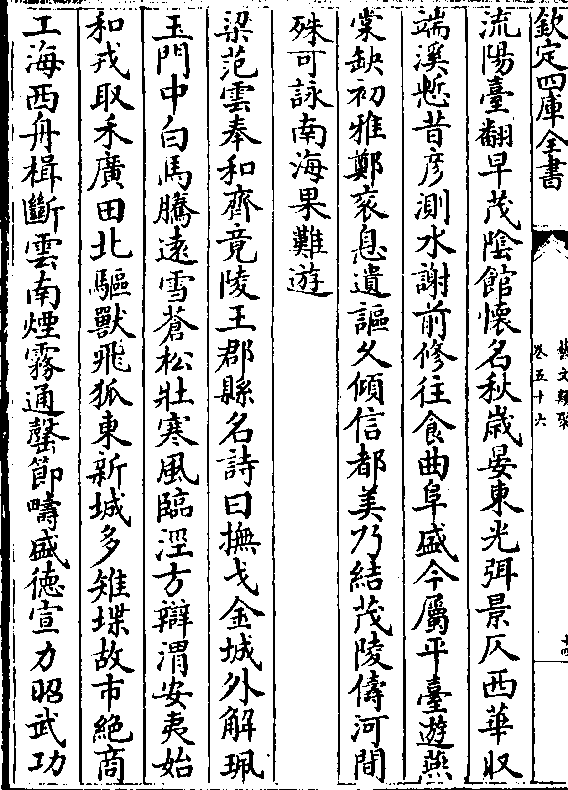 欽定四庫全書
藝文類聚
卷五十六
十四
流陽臺翻早茂陰館懷名秋歳晏東光弭景仄西華収
端溪慙昔彦測水謝前修往食曲阜盛今屬平臺遊燕
棠缺初雅鄭衮息遺謳久傾信都美乃結茂陵儔河間
殊可詠南海果難遊
梁范雲奉和齊竟陵王郡縣名詩曰撫戈金城外解珮
玉門中白馬騰遠雪蒼松壯寒風臨涇方辯渭安夷始
和戎取禾廣田北驅獸飛狐東新城多雉堞故市絶商
工海西舟楫斷雲南煙霧通罄節疇盛徳宣力昭武功